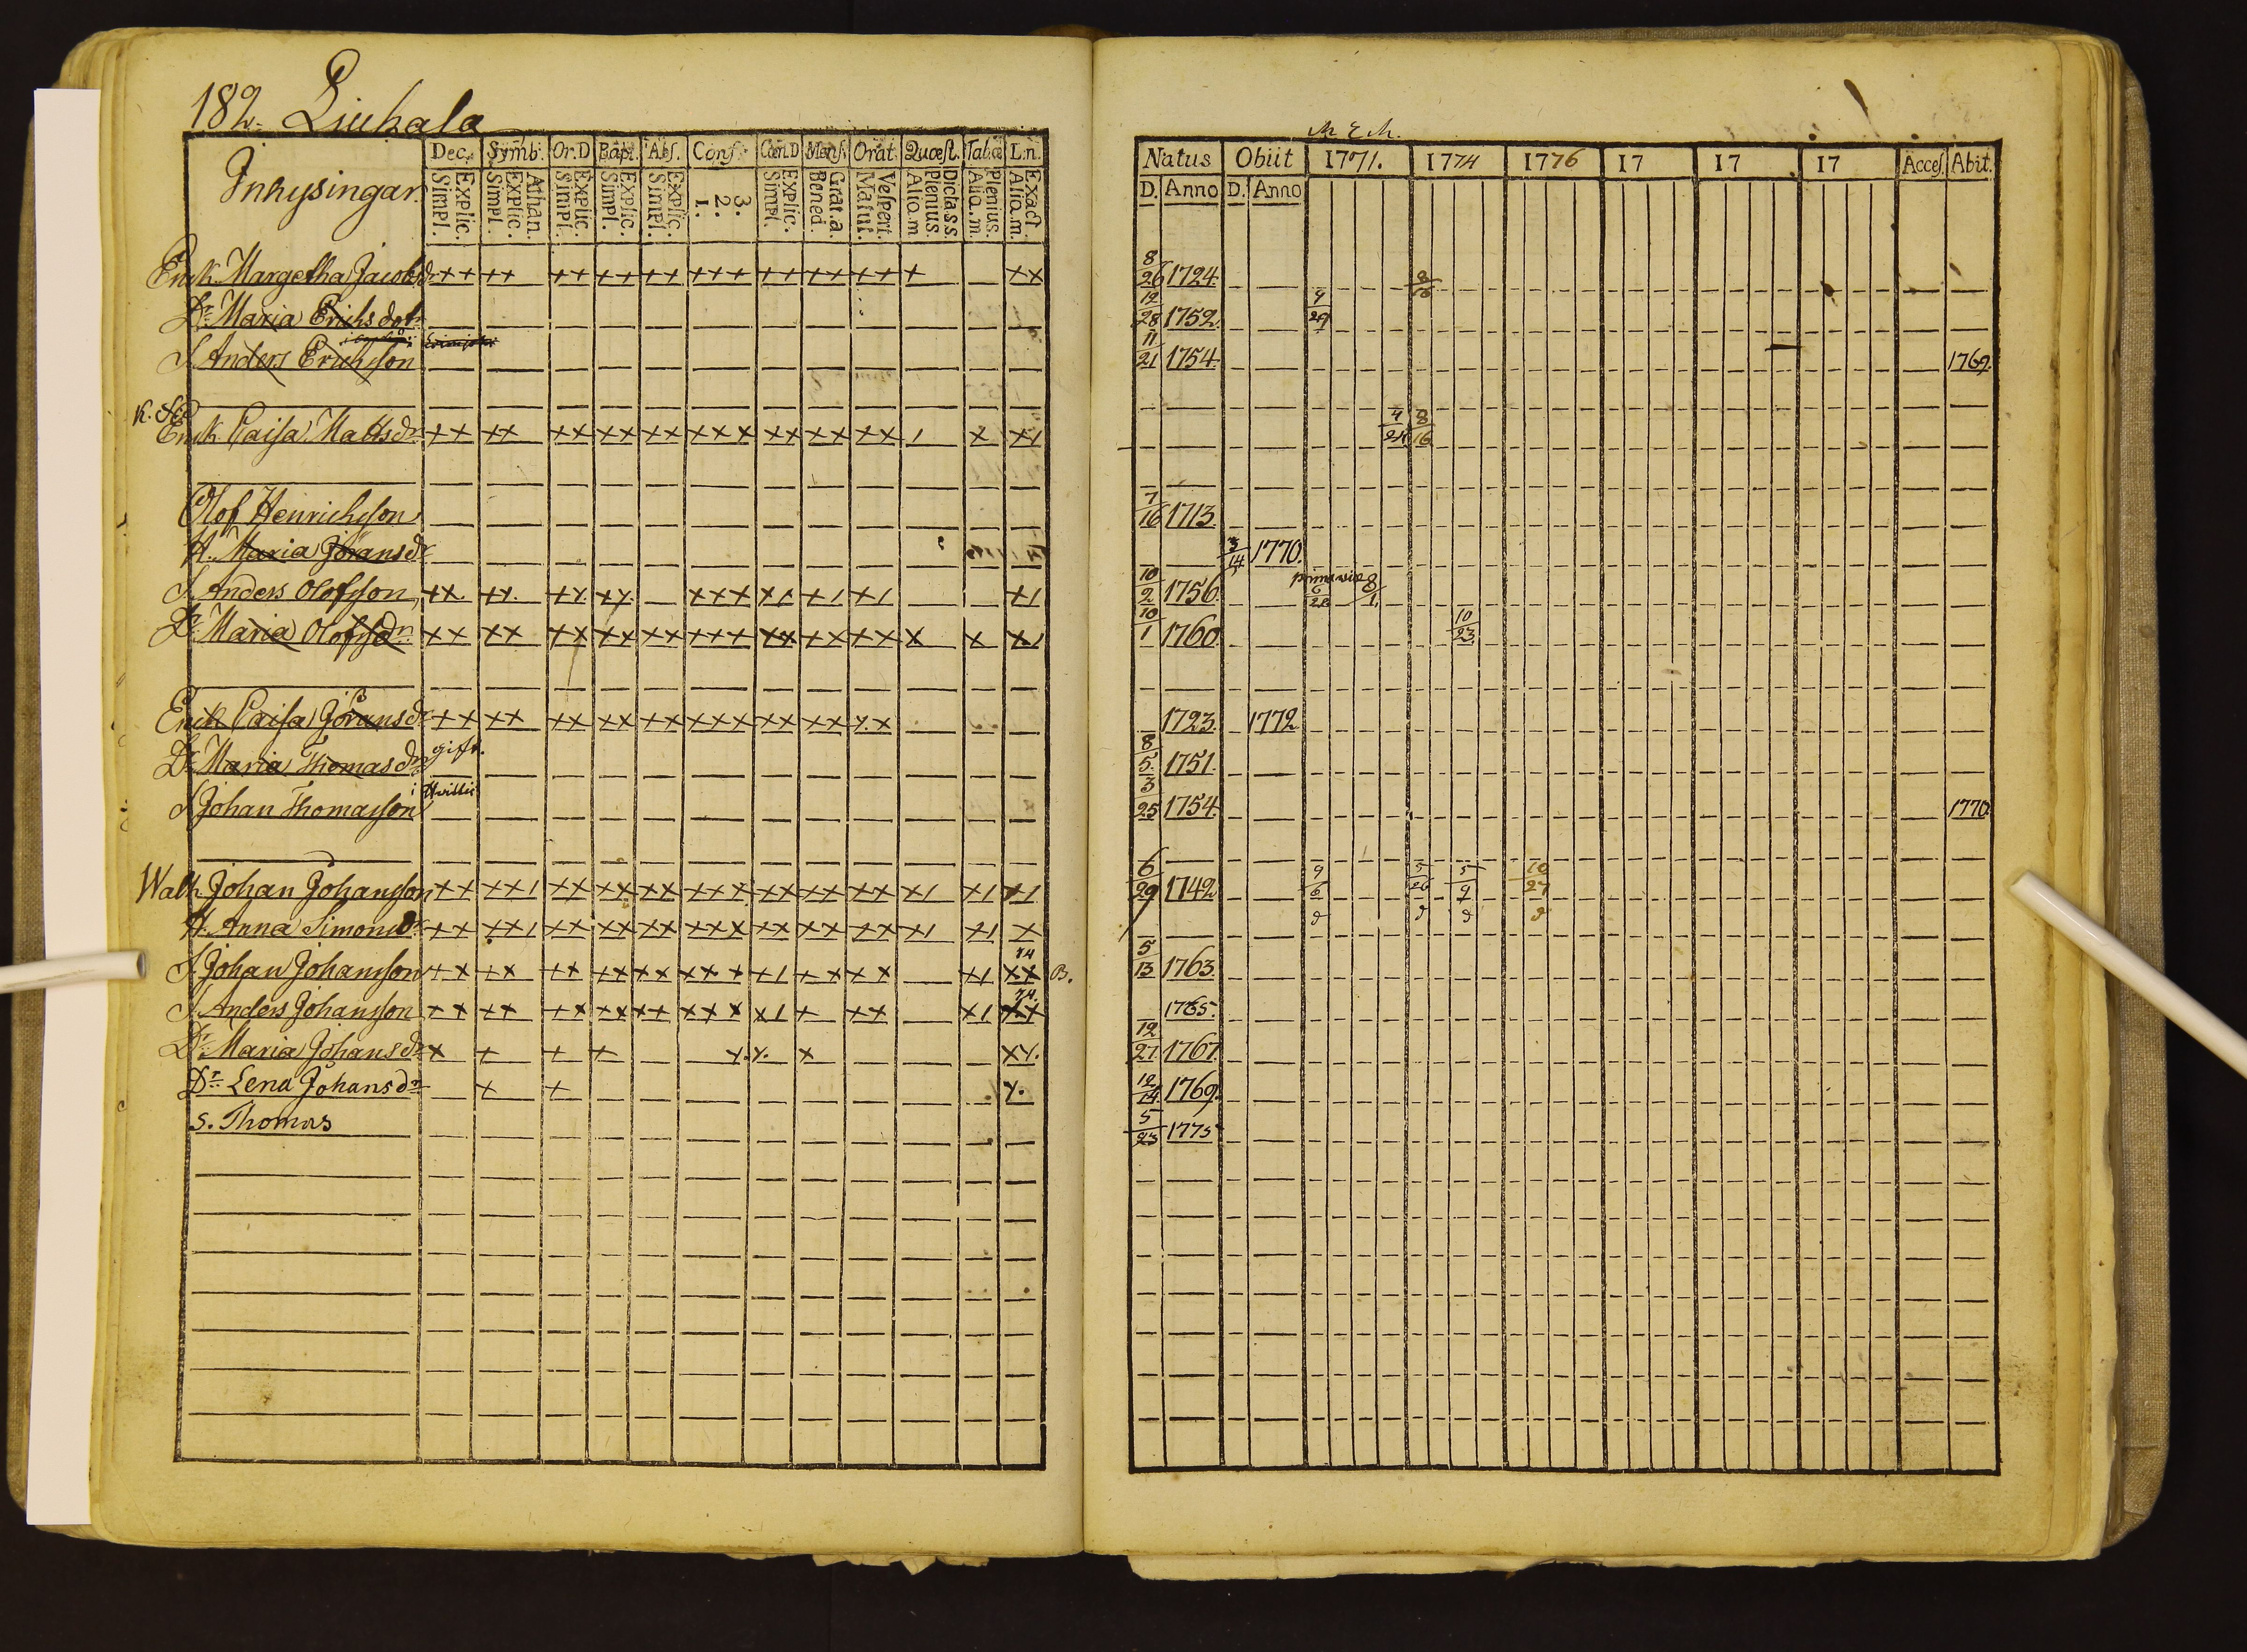 182. Liuhala
Inhysingar. Dec. Symb. Or.D Bapt. Abs. Conf. Cœn.D Mens. Orat. Quæst. Tab.œ L.n.
Explic. Simpl. Athan. Explic. Simpl. Explic. Simpl. Explic. Simpl. Explic. Simpl. 3. 2. 1. Explic. Simpl. Grat.a. Bened. Vespert. Matut. Dicta s.s. Plenius. Alia.m Plenius. Alia.m. Exact. Alia.m.
Enk. Margetha Jacobsdr ++ ++ ++ ++ ++ +++ ++ ++ ++ + ++
Dr. Maria Erichsdotr
S. Anders Erichsson
Enk. Caisa Mattsdr ++ ++ ++ ++ ++ +++ ++ ++ ++ / + +/
Olof Henrichsson
H. Maria Göransdr
S. Anders Olofsson ++ ++ ++ ++ +++ +/ +/ +/ +/
Dr. Maria Olofsdr ++ ++ ++ ++ ++ +++ ++ ++ ++ + + +/
Enk Caisa Göransdr ++ ++ ++ ++ ++ +++ ++ ++ ++
Dr. Maria Thomasdr gift.
S Johan Thomasson
Walb. Johan Johansson ++ ++/ ++ ++ ++ +++ ++ ++ ++ +/ +/ +/
H. Anna Simonsdr ++ ++/ ++ ++ ++ +++ ++ ++ ++ +/ +/ +
S. Johan Johansson ++ ++ ++ ++ ++ +++ +/ ++ ++ +/ 74 ++ B.
S. Anders Johansson ++ ++ ++ ++ ++ +++ +/ + ++ +/ 74. ++
Dr. Maria Johansdr + + + + + + + ++
Dr. Lena Johansdr + + +
S. Thomas
Natus Obiit 1771. 1774 1776 17 17 17 Acces. Abit.
D. Anno D. Anno
8/26 1724. 8/16
12/28 1752. 4/29
11/21 1754. 1769.
4/24 8/16
7/16 1713.
3/14 1770.
10/2 1756.
10/1 1760. 10/23
1723. 1772
8/5 1751.
3/25 1754. 1770
6/29 1742 4/6 5/26 5/9 10/27
5/13 1763.
1765.
12/27 1767.
12/14 1769.
5/23 1775